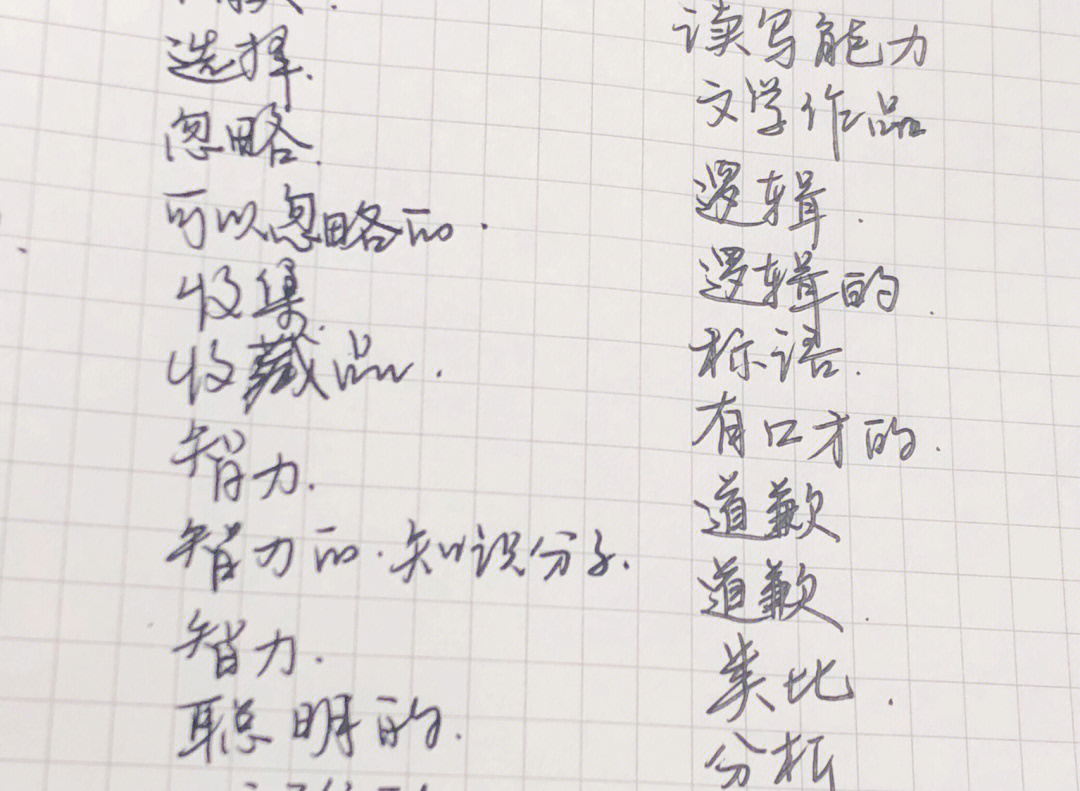 选择.
忽略.
可以忽略的.
收集
收藏品.
智力.
智力的.知识分子.
智力.
聪明的.
读写能力
文学作品
逻辑.
逻辑的.
标语.
有口才的.
道歉
道歉.
类比.
分析